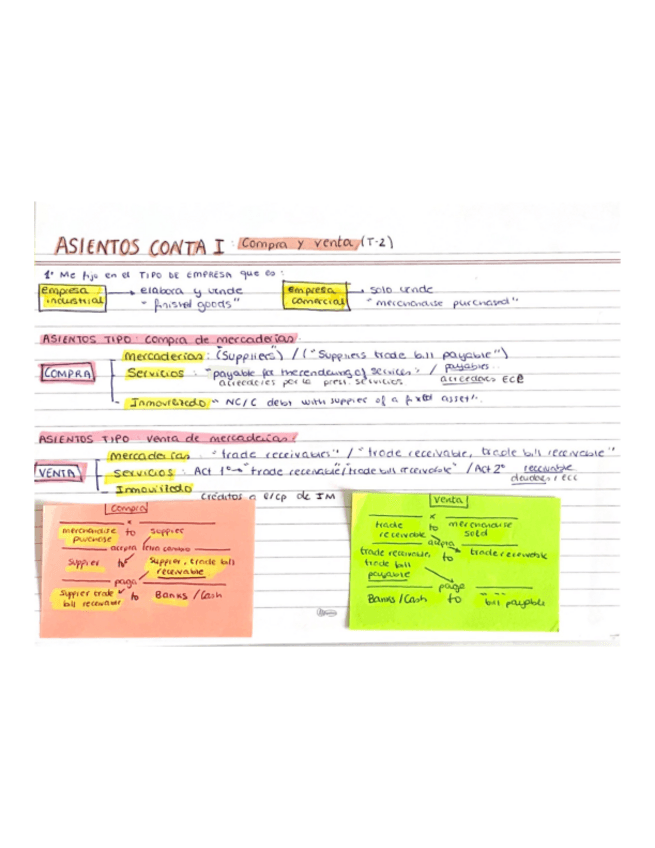 ASIENTOS CONTA I : Compra y venta (T-2)
1º Me fijo en el TIPO DE EMPRESA que es :
empresa industrial → elabora y vende "finisted goods"
empresa comercial → solo vende "merchandise purchased"
ASIENTOS TIPO : Compra de mercaderías.
COMPRA
Mercaderias : (Suppliers") / ("Suppliers trade bill payable")
Servicios : "payable for the rendering of services" / payables..
acreedores por la prest. servicios acreedores ECE
Inmovilizado "NC/C debt with supplier of a fixed asset".
ASIENTOS TIPO : Venta de mercaderías!
VENTA
Mercaderias : "trade receivables" / "trade receivable, trade bill receivable"
Servicios : Act 1º → "trade receivable/trade bill receivable" / Act 2º receivable
deudores / ECC
Inmovilizado
Créditos a e/cp de IM
Compra
x
merchandise purchase to supplier
acepta letra cambio
Supplier to Supplier, trade bill receivable
paga
Supplier trade bill receivable to Banks / Cash
Venta
x
trade receivable to merchandise sold
acepta
trade receivable, trade bill payable to trade receivable
paga
Banks / Cash to " " bill payable